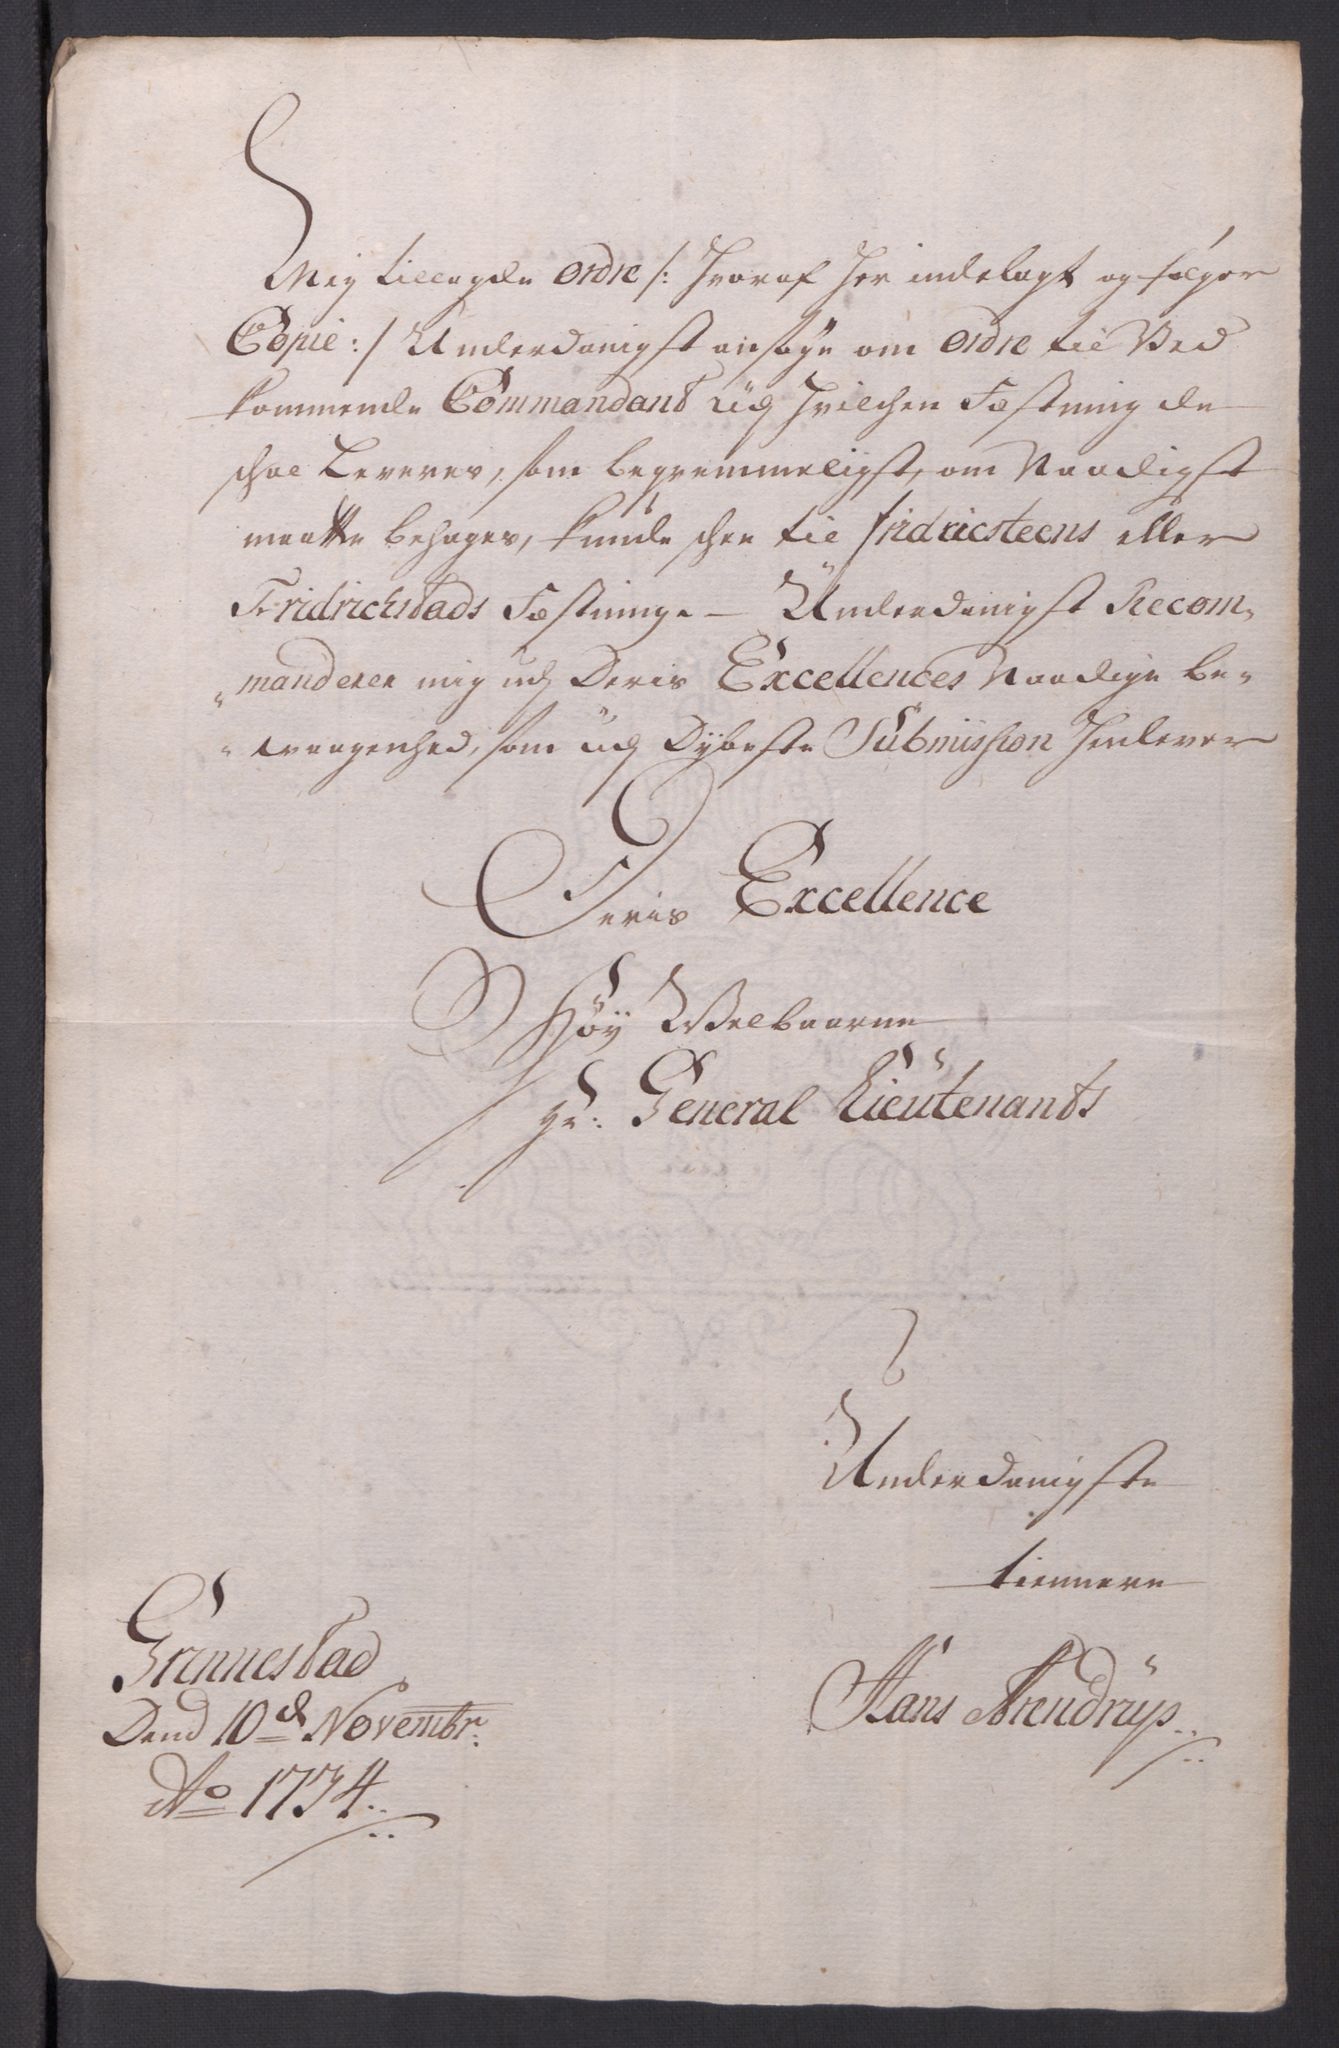 Mig tillagde Ordre /: hvoraf her indelagt og følger
Copie :/ Underdanigst ansøge om Ordre til Ved
kommende Commandant udj hvilchen Fæstning de
schal Leveres, som beqvemmeligst, om Naadigst
maatte behages, kunde schee til fridricsteens eller
Fridrichstads Fæstninge — Underdanigst Recom„
„manderer mig udj Deris Excellences Naadige be„
„vaagenhed, som udj Dÿbeste Submission henlever
Deris Excellence
Høy Welbaarne
Hr. General Lieutenants
Underdanigste
tienere
Hans Arendrup
Grinnestad
Dend 10d Novembr:
Ao 1734.